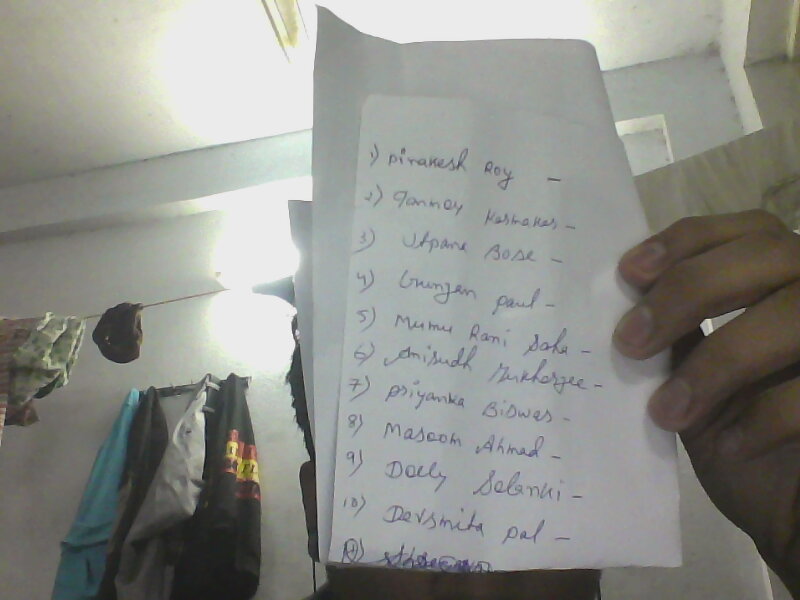 1) Pirakesh Roy -
2) Tanmoy Karmakar -
3) Utpana Bose -
4) Gunjan paul -
5) Mumu Rani Saha -
6) Anirudh Mukherjee -
7) Priyanka Biswas -
8) Masoom Ahmad -
9) Dolly Solanki -
10) Devsmita pal -